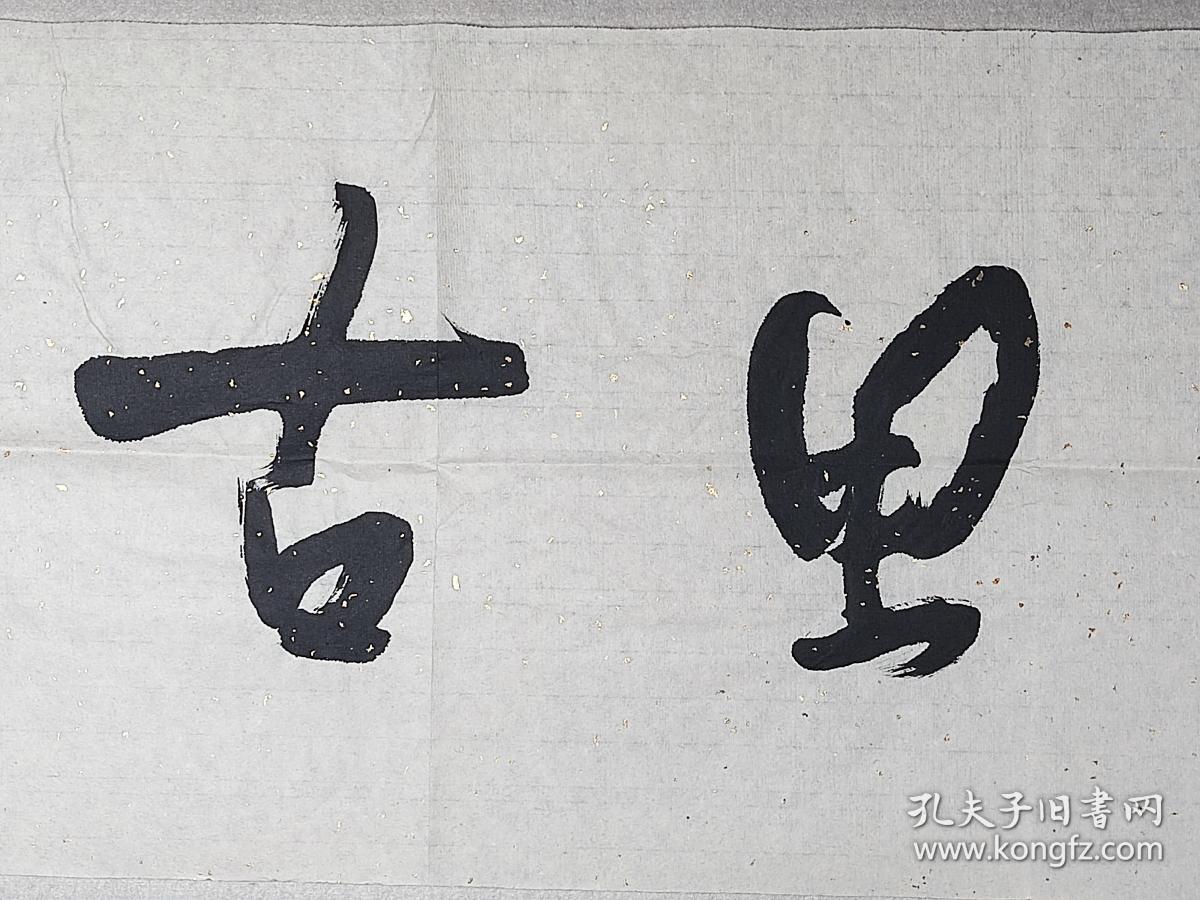 里古
孔夫子旧書网
www.kongfz.com